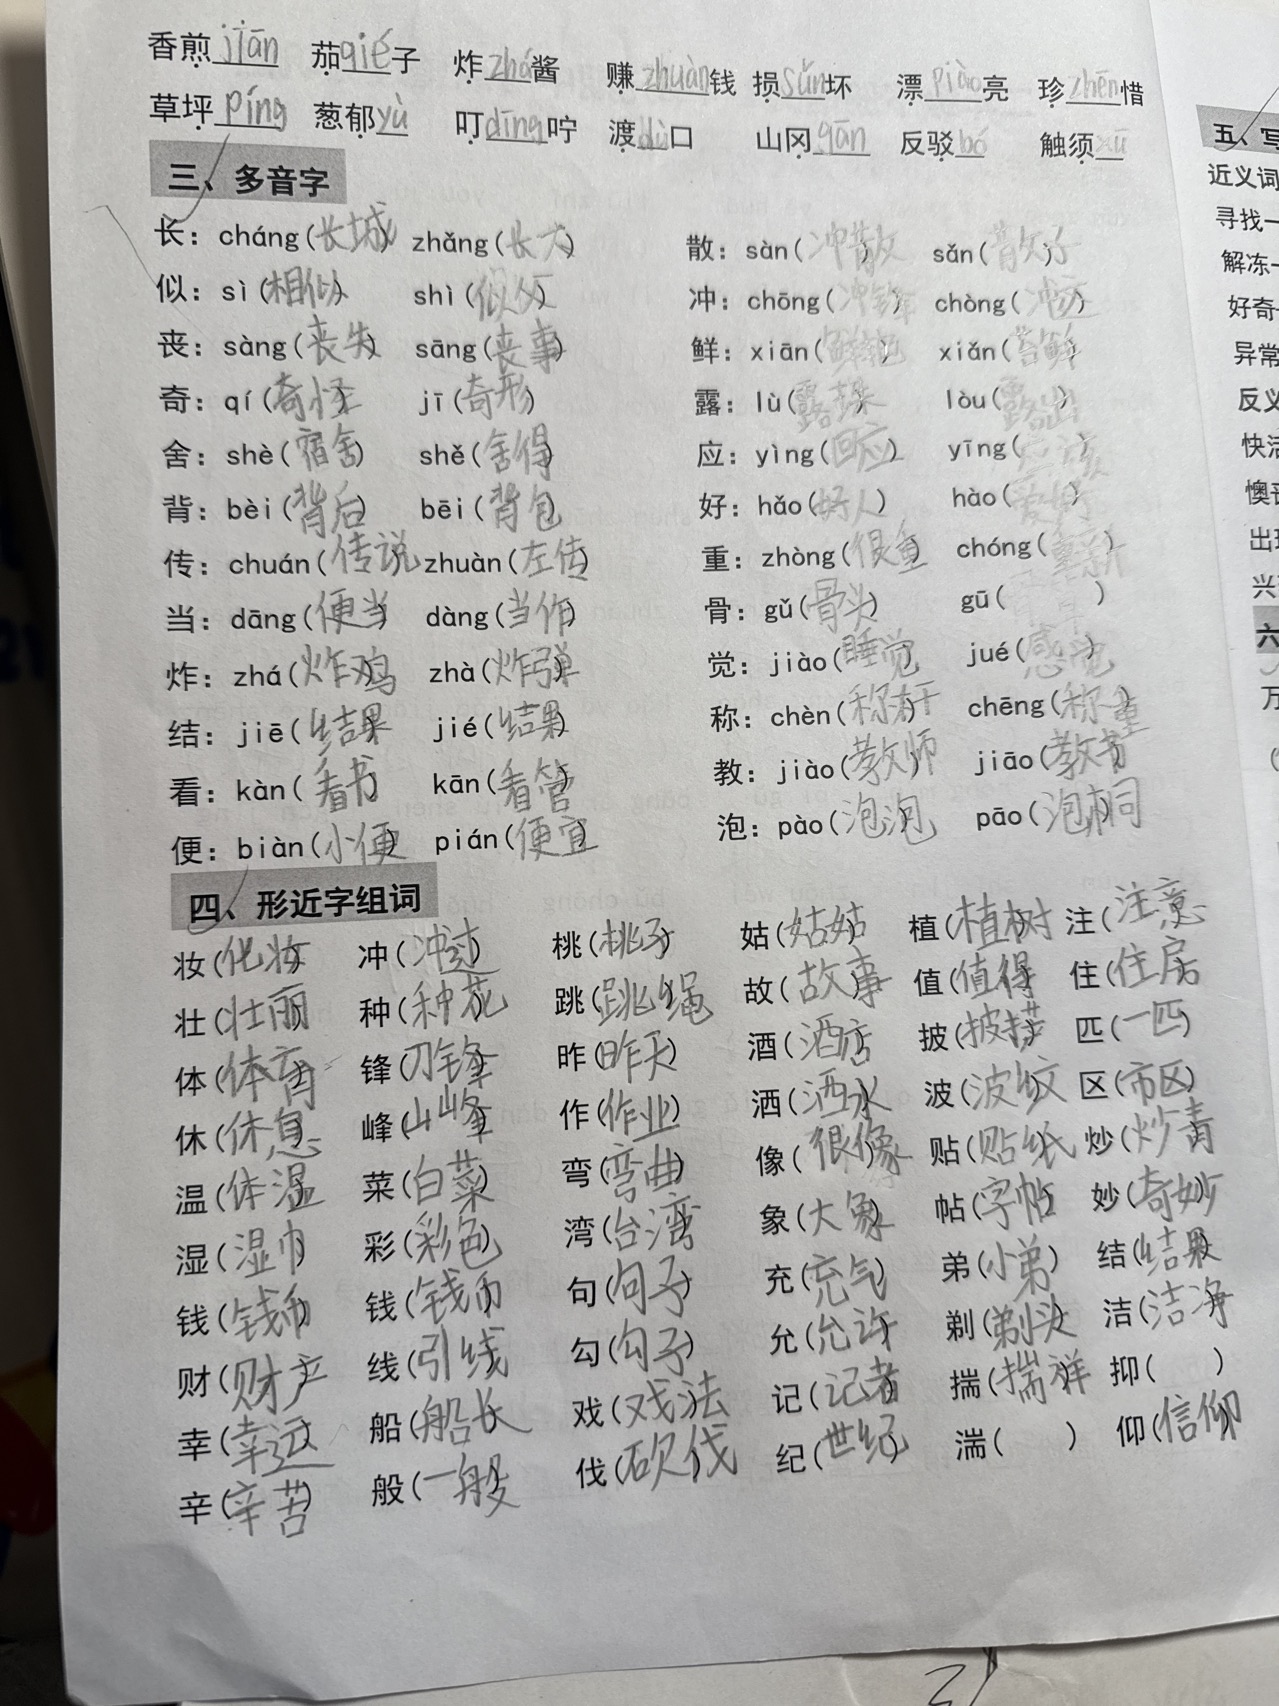 香煎jiān 茄qié子 炸zhá酱 赚zhuàn钱 损sǔn坏 漂piào亮 珍zhēn惜
草坪píng 葱郁yù 叮dīng咛 渡dù口 山冈gān 反驳bó 触须xū
三、多音字
长：cháng(长城) zhǎng(长大) 散：sàn(冲散) sǎn(散子)
似：sì(相似) shì(似父) 冲：chōng(冲锋) chòng(冲压)
丧：sàng(丧失) sāng(丧事) 鲜：xiān(鲜艳) xiǎn(苔鲜)
奇：qí(奇怪) jī(奇形) 露：lù(露珠) lòu(露出)
舍：shè(宿舍) shě(舍得) 应：yìng(回应) yīng(应该)
背：bèi(背后) bēi(背包) 好：hǎo(好人) hào(爱好)
传：chuán(传说) zhuàn(左传) 重：zhòng(很重) chóng(重新)
当：dāng(便当) dàng(当作) 骨：gǔ(骨头) gū( )
炸：zhá(炸鸡) zhà(炸弹) 觉：jiào(睡觉) jué(感觉)
结：jiē(结果) jié(结果) 称：chèn(称杆) chēng(称重)
看：kàn(看书) kān(看管) 教：jiào(教师) jiāo(教书)
便：biàn(小便) pián(便宜) 泡：pào(泡泡) pāo(泡桐)
四、形近字组词
妆(化妆) 冲(冲过) 桃(桃子) 姑(姑姑) 植(植树) 注(注意)
壮(壮丽) 种(种花) 跳(跳绳) 故(故事) 值(值得) 住(住房)
体(体育) 锋(刀锋) 昨(昨天) 酒(酒店) 披(披搭) 匹(一匹)
休(休息) 峰(山峰) 作(作业) 洒(洒水) 波(波纹) 区(市区)
温(体温) 菜(白菜) 弯(弯曲) 像(很像) 贴(贴纸) 炒(炒青)
湿(湿巾) 彩(彩色) 湾(台湾) 象(大象) 帖(字帖) 妙(奇妙)
钱(钱币) 钱(钱币) 句(句子) 充(充气) 弟(小弟) 结(结果)
财(财产) 线(引线) 勾(勾子) 允(允许) 剃(剃头) 洁(洁净)
幸(幸运) 船(船长) 戏(戏法) 记(记者) 揣(揣祥) 抑( )
辛(辛苦) 般(一般) 伐(砍伐) 纪(世纪) 湍( ) 仰(信仰)
五、写
近义词
寻找一
解冻一
好奇
异常
反义
快活
懊丧
出
兴
六
万